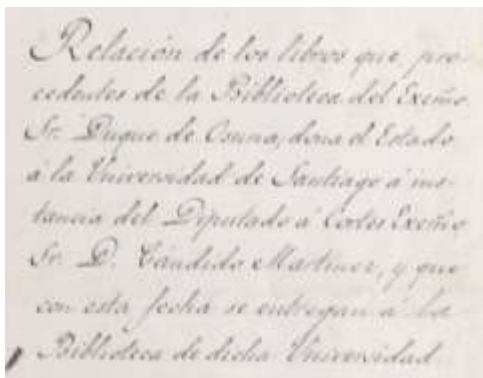 Relación de los libros que pro-
cedentes de la Biblioteca del Excmo
Sr. Duque de Osuna, dona el Estado
á la Universidad de Santiago á ins-
tancia del Diputado á Cortes Excmo
Sr. D. Cándido Martinez, y que
con esta fecha se entregan á la
Biblioteca de dicha Universidad